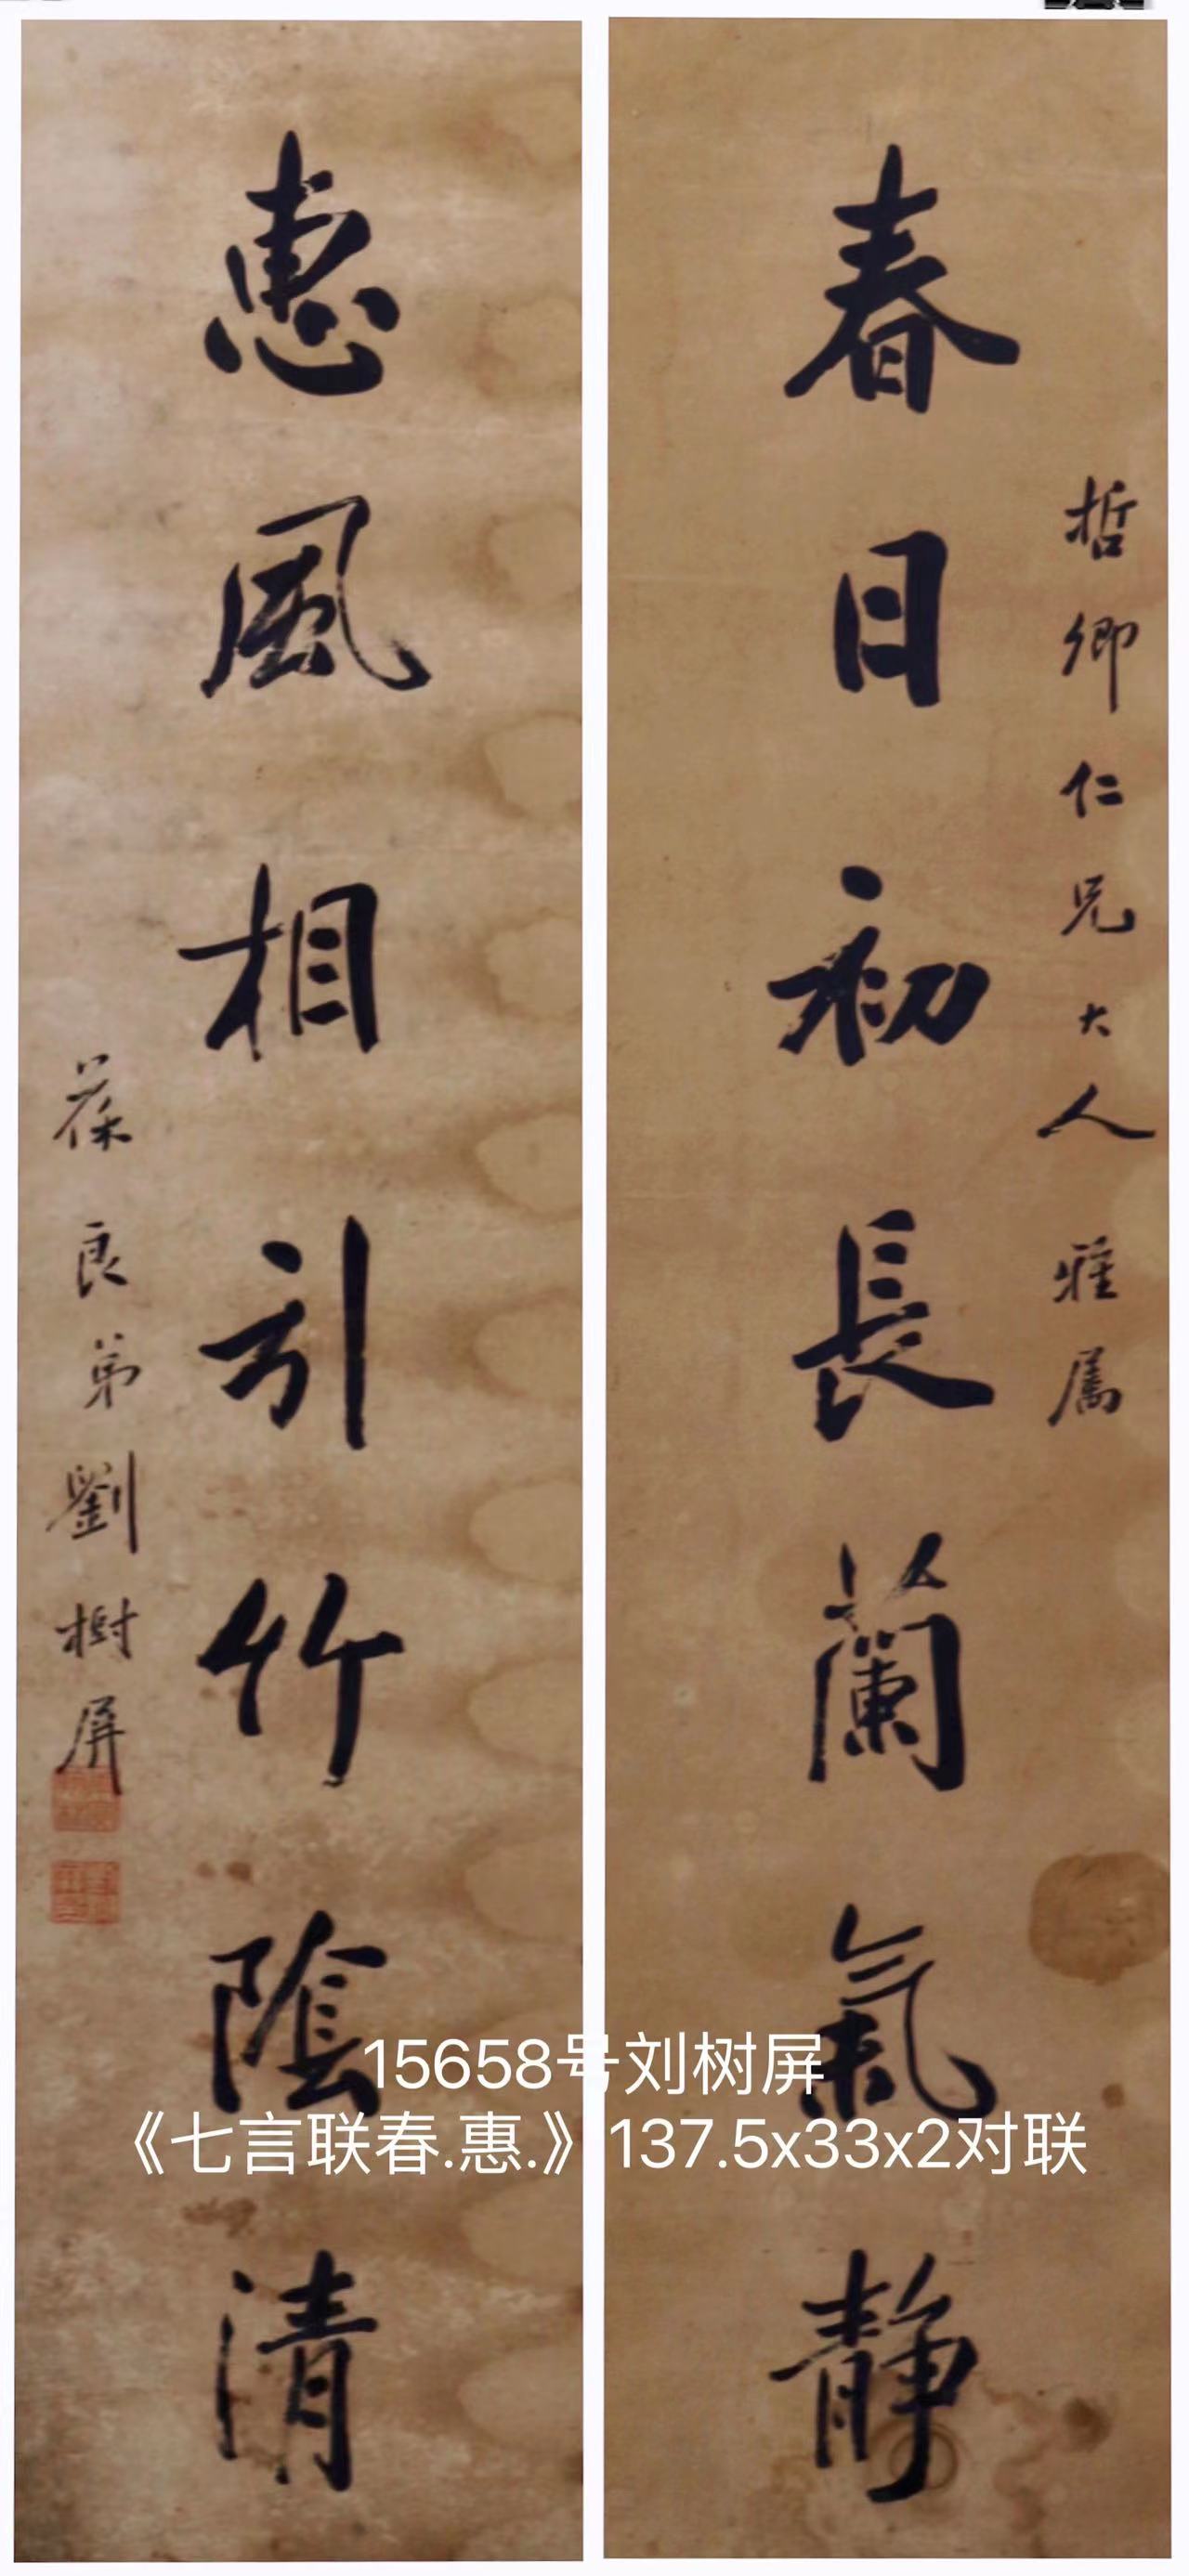 哲卿仁兄大人雅屬
春日初長蘭氣靜
惠風相引竹陰清
葆良弟劉樹屏
15658号刘树屏
《七言联春.惠.》137.5x33x2对联